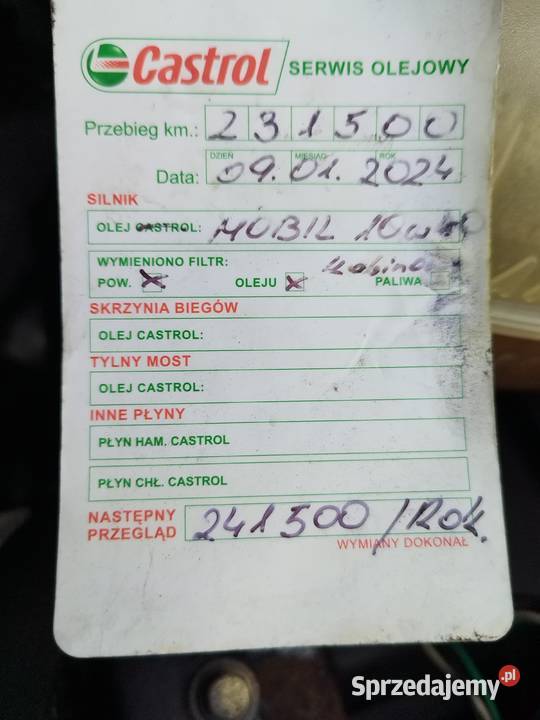 Castrol SERWIS OLEJOWY
Przebieg km.: 231500
DZIEŃ MIESIĄC ROK
Data: 09.01.2024
SILNIK
OLEJ CASTROL: MOBIL 10W40
WYMIENIONO FILTR: Kabinowy
POW. X OLEJU X PALIWA
SKRZYNIA BIEGÓW
OLEJ CASTROL:
TYLNY MOST
OLEJ CASTROL:
INNE PŁYNY
PŁYN HAM. CASTROL
PŁYN CHŁ. CASTROL
NASTĘPNY PRZEGLĄD 241500/Rok.
WYMIANY DOKONAŁ
Sprzedajemy.pl